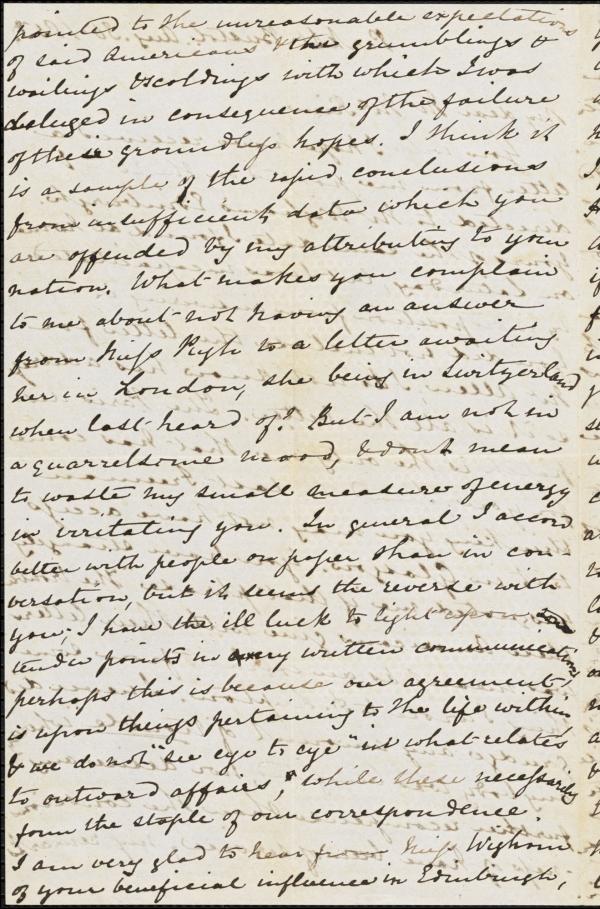 pointed to the unreasonable expectations
of said Americans & the grumblings &
wailings & scoldings with which I was
deluged in consequence of the failure
of these groundless hopes. I think it
is a sample of the rapid conclusions
from insufficient data which you
are offended by my attributing to your
nation. What makes you complain
to me about not having an answer
from Miss Pugh to a letter awaiting
her in London, she being in Switzerland
when last heard of? But I am not in
a quarrelsome mood, & don't mean
to waste my small measure of energy
in irritating you. In general I accord
better with people on paper than in con-
versation, but it seems the reverse with
you; I have the ill luck to light upon
tender points in every written communication,
perhaps this is because our agreement
is upon things pertaining to the life within
& we do not "see eye to eye" in what relates
to outward affairs, while these necessarily
form the staple of our correspondence.
I am very glad to hear from Miss Wigham
of your beneficial influence in Edinburgh,